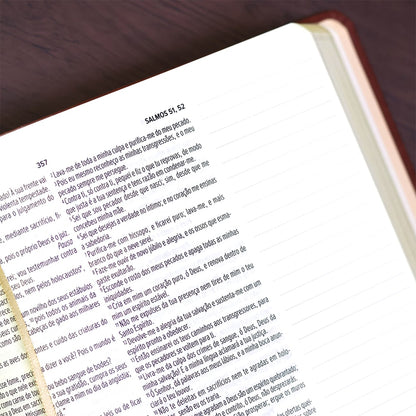 357
SALMOS 51, 52
vai
violenta tempestade.
para o julgamento do
mediante sacrifício,
o próprio Deus é o
Pausa
vou testemunhar contra
Deus.
holocaustos
novilho dos seus estábulos
pois todos os animais da
cabeças de gado aos milhares
e cuido das criaturas do
a dizer a você? Pois o mundo é
ou bebo sangue de bodes?
a sua gratidão, cumpra os seus
a mim no dia da angústia;
²Lava-me de toda a minha culpa e purifica-me do meu pecado.
³Pois eu mesmo reconheço as minhas transgressões, e o meu
pecado sempre me persegue.
⁴Contra ti, só contra ti, pequei e fiz o que tu reprovas, de modo
que justa é a tua sentença e tens razão em condenar-me.
⁵Sei que sou pecador desde que nasci, sim, desde que me
concebeu minha mãe.
⁶Sei que desejas a verdade no íntimo; e no coração me ensinas
a sabedoria.
⁷Purifica-me com hissopo, e ficarei puro; lava-me, e mais
branco do que a neve serei.
⁸Faze-me ouvir de novo júbilo e alegria, e os ossos que esma-
gaste exultarão.
⁹Esconde o rosto dos meus pecados e apaga todas as minhas
iniquidades.
¹⁰Cria em mim um coração puro, ó Deus, e renova dentro de
mim um espírito estável.
¹¹Não me expulses da tua presença nem tires de mim o teu
Santo Espírito.
¹²Devolve-me a alegria da tua salvação e sustenta-me com um
espírito pronto a obedecer.
¹³Então ensinarei os teus caminhos aos transgressores, para
que os pecadores se voltem para ti.
¹⁴Livra-me da culpa dos crimes de sangue, ó Deus, Deus da
minha salvação! E a minha língua aclamará a tua justiça.
¹⁵Ó Senhor, dá palavras aos meus lábios, e a minha boca anun-
ciará o teu louvor.
¹⁶Não te deleitas em sacrifícios nem te agradas em
que agradam a Deus são um espírito quebrantado;
contrito, ó Deus, não desprezarás.